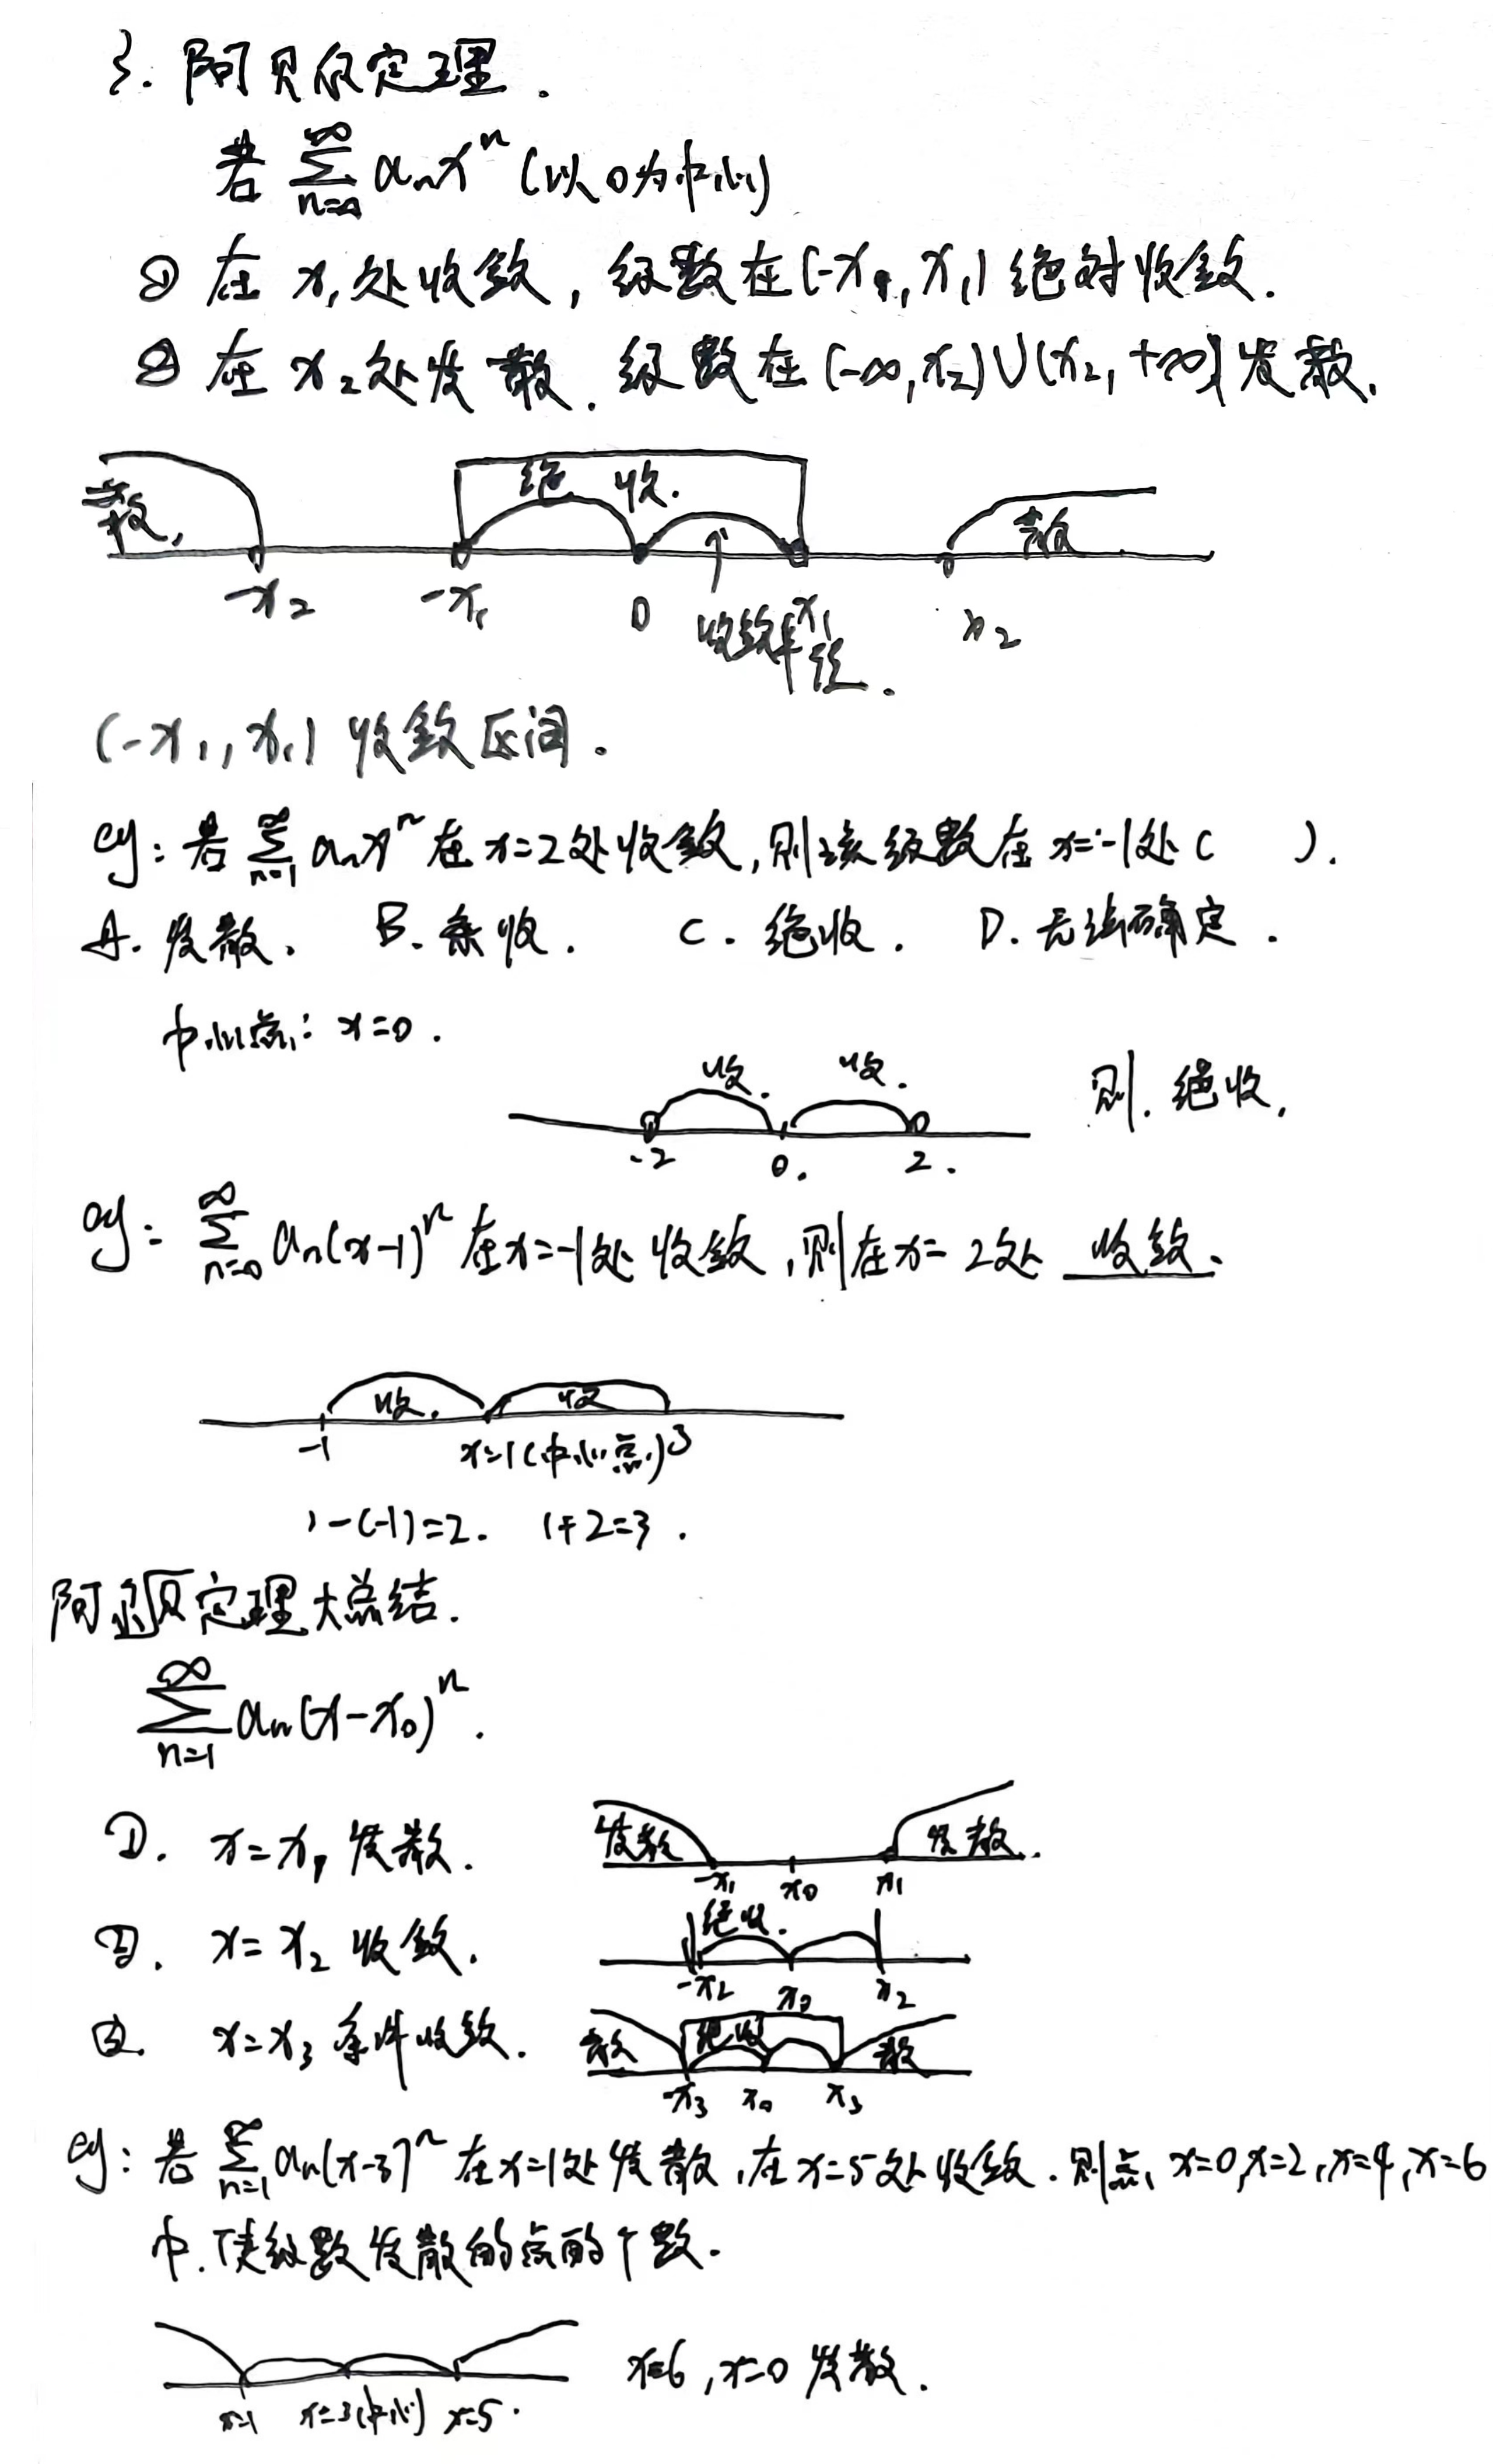 3. 阿贝尔定理.
若 ∑_{n=0}^{∞} aₙxⁿ (以0为中心)
① 在 x₁处收敛, 级数在(-x₁, x₁) 绝对收敛.
② 在 x₂处发散. 级数在(-∞, x₂)∪(x₂, +∞)发散.
散, 绝 收. 散
-x₂ -x₁ 0 x₁ x₂
收敛半径.
(-x₁, x₁) 收敛区间.
eg: 若 ∑_{n=1}^{∞} aₙxⁿ 在 x=2处收敛, 则该级数在 x=-1处( ).
A. 发散. B. 条收. C. 绝收. D. 无法确定.
中心点: x=0.
收. 收. 则. 绝收.
-2 0. 2.
eg: ∑_{n=0}^{∞} aₙ(x-1)ⁿ 在x=-1处 收敛, 则在x=2处 收敛.
收. 收
-1 x=1(中心点) 3
1-(-1)=2. 1+2=3.
阿贝定理大总结.
∑_{n=1}^{∞} aₙ(x-x₀)ⁿ.
①. x=x₁ 发散. 发散 发散.
-x₁ x₀ x₁
②. x=x₂ 收敛. 绝收.
-x₂ x₀ x₂
③. x=x₃ 条件收敛. 散 绝收 散
-x₃ x₀ x₃
eg: 若 ∑_{n=1}^{∞} aₙ(x-3)ⁿ 在x=1处发散, 在x=5处收敛. 则点 x=0, x=2, x=4, x=6
中. 使级数发散的点的个数.
x=6, x=0 发散.
x=1 x=3(中心) x=5.